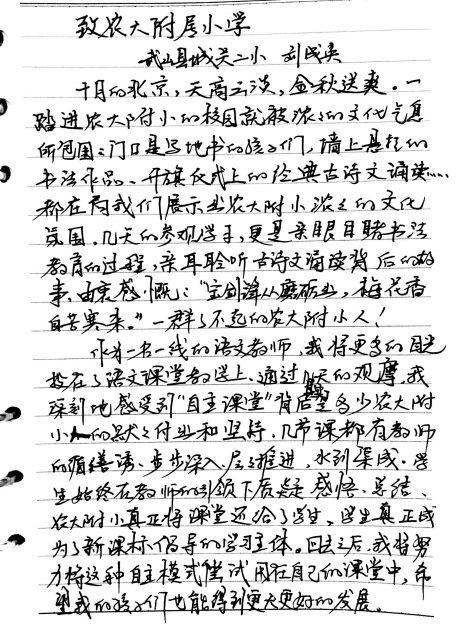 致农大附属小学
武山县城关二小 刘成英
十月的北京,天高云淡,金秋送爽。一
踏进农大附小的校园就被浓浓的文化气息
所包围:门口是写地书的孩子们,墙上悬挂的
书法作品、升旗仪式上的经典古诗文诵读……
都在向我们展示出农大附小浓浓的文化
氛围。几天的参观学习,更是亲眼目睹书法
教育的过程,亲耳聆听古诗文诵读背后的故
事,由衷感慨:“宝剑锋从磨砺出,梅花香
自苦寒来。”一群了不起的农大附小人!
作为一名一线的语文教师,我将更多的目光
投在了语文课堂教学上,通过几天的观摩,我
深刻地感受到“自主课堂”背后是多少农大附
小人的默默付出和坚持。几节课都有教师
的循循善诱、步步深入、层层推进,水到渠成。学
生始终在教师的引领下质疑、感悟、总结、
农大附小真正将课堂还给了学生,学生真正成
为了新课标倡导的学习主体。回去之后,我将努
力将这种自主模式尝试用在自己的课堂中,希
望我的孩子们也能得到更大更好的发展。